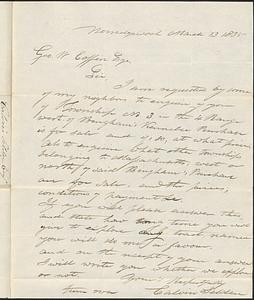 Norridgewock March 13 1835
Geo. W. Coffin Esq.
Sir
I am requested by some
of my neighbors to enquire if you
if Township No 3 in the 6 Range
west of Bingham's Kennebec Purchase
is for sale and if so, at what price
also to enquire what other townships
belonging to Massachusetts, west and
north of said Bingham's Purchase
are for sale, and the prices,
conditions of payment &c
If you will please answer this,
and state how time you will
give to explore and names
you will do me a favour
and on the receipt of your answer
I will write you whether we explore
or not. Yours Respectfully
turn over Calvin Selden